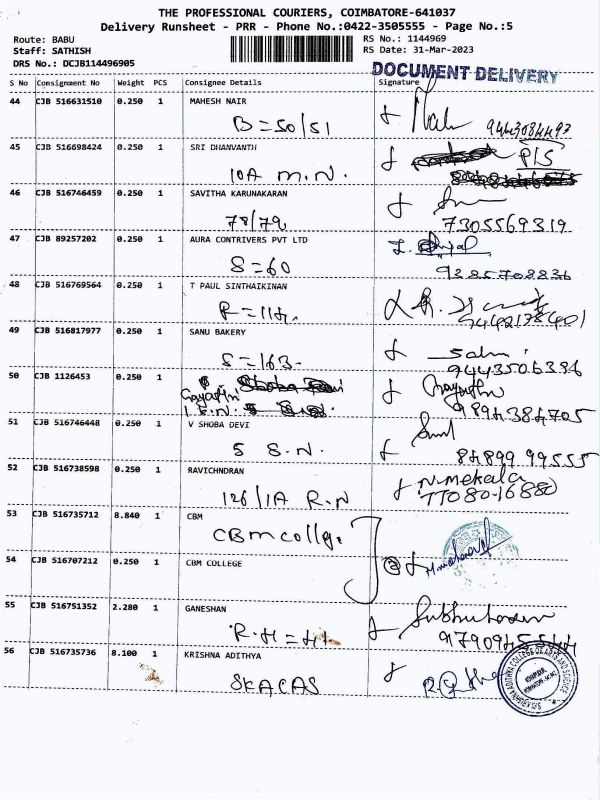 THE PROFESSIONAL COURIERS, COIMBATORE-641037
Delivery Runsheet - PRR - Phone No.:0422-3505555 - Page No.:5
Route: BABU RS No.: 1144969
Staff: SATHISH RS Date: 31-Mar-2023
DRS No.: DCJB114496905
DOCUMENT DELIVERY
S No Consignment No Weight PCS Consignee Details Signature
44 CJB 516631510 0.250 1 MAHESH NAIR
B=50/51 9443084493
45 CJB 516698424 0.250 1 SRI DHANVANTH
10A M.N. P/S
46 CJB 516746459 0.250 1 SAVITHA KARUNAKARAN
78/79 7305569319
47 CJB 89257202 0.250 1 AURA CONTRIVERS PVT LTD
S=60 9385708836
48 CJB 516769564 0.250 1 T PAUL SINTHAIKINAN
R=114.
49 CJB 516817977 0.250 1 SANU BAKERY
S=163- 9443506386
50 CJB 1126453 0.250 1
Gayatri
9894384705
51 CJB 516746448 0.250 1 V SHOBA DEVI
5 S.N. 84899 99555
52 CJB 516738598 0.250 1 RAVICHNDRAN
126/1A R.N N. mekala
77080-16880
53 CJB 516735712 8.840 1 CBM
CBM collge
54 CJB 516707212 0.250 1 CBM COLLEGE
55 CJB 516751352 2.280 1 GANESHAN
R.H=H1
56 CJB 516735736 8.100 1 KRISHNA ADITHYA
SKACAS